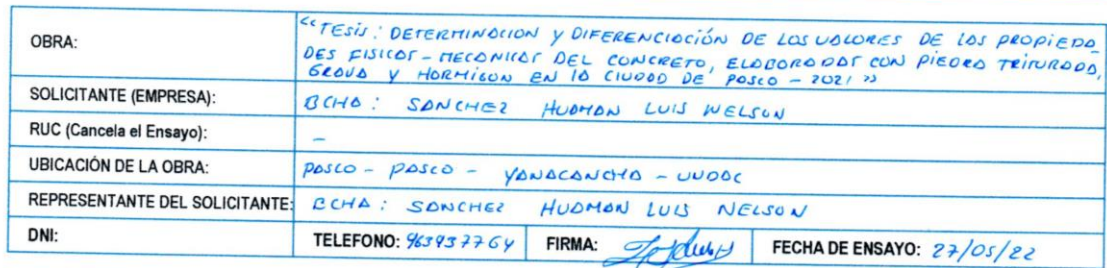 OBRA: "TESIS: DETERMINACION Y DIFERENCIACIÓN DE LOS VALORES DE LAS PROPIEDA
DES FISICAS - MECANICAS DEL CONCRETO, ELABORADAS CON PIEDRA TRITURADA,
GRAVA Y HORMIGON EN LA CIUDAD DE PASCO - 2021"
SOLICITANTE (EMPRESA): BCHA: SANCHEZ HUAMAN LUIS NELSON
RUC (Cancela el Ensayo): -
UBICACIÓN DE LA OBRA: PASCO - PASCO - YANACANCHA - UNDAC
REPRESENTANTE DEL SOLICITANTE: BCHA: SANCHEZ HUAMAN LUIS NELSON
DNI: TELEFONO: 963937764 FIRMA: FECHA DE ENSAYO: 27/05/22